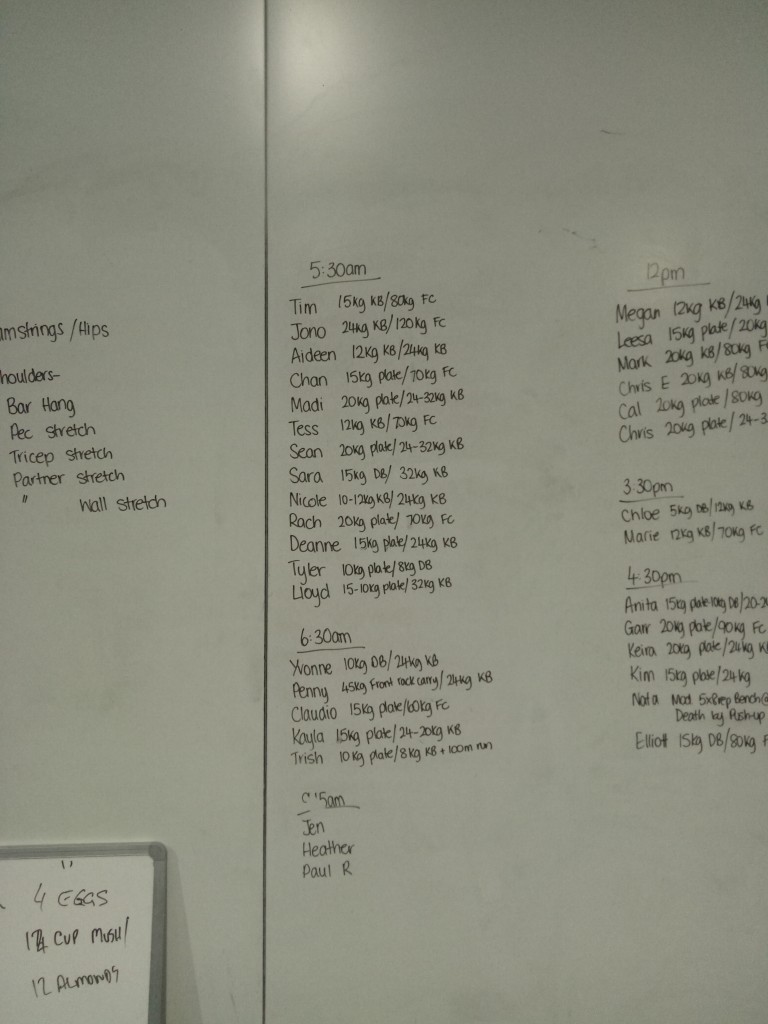 amstrings / Hips
houlders-
Bar Hang
Pec stretch
Tricep stretch
Partner stretch
" Wall stretch
4 EGGS
1/4 CUP MUSH/
12 ALMONDS
5:30am
Tim 15kg KB/80kg FC
Jono 24kg KB/120kg FC
Aideen 12kg KB/24kg KB
Chan 15kg plate/70kg FC
Madi 20kg plate/24-32kg KB
Tess 12kg KB/70kg FC
Sean 20kg plate/24-32kg KB
Sara 15kg DB/ 32kg KB
Nicole 10-12kg KB/24kg KB
Rach 20kg plate/ 70kg FC
Deanne 15kg plate/24kg KB
Tyler 10kg plate/8kg DB
Lloyd 15-10kg plate/32kg KB
6:30am
Yvonne 10kg DB/24kg KB
Penny 45kg front rack carry/24kg KB
Claudio 15kg plate/60kg FC
Kayla 15kg plate/24-20kg KB
Trish 10kg plate/8kg KB + 100m run
15am
Jen
Heather
Paul R
12pm
Megan 12kg KB/24kg
Leesa 15kg plate/20kg
Mark 20kg KB/80kg F
Chris E 20kg KB/80kg
Cal 20kg plate/80kg
Chris 20kg plate/24-3
3:30pm
Chloe 5kg DB/12kg KB
Marie 12kg KB/70kg FC
4:30pm
Anita 15kg plate 10kg DB/20-2
Garr 20kg plate/90kg FC
Keira 20kg plate/24kg K
Kim 15kg plate/24kg
Nata Mod 5x8rep Bench@
Death by Push-up
Elliott 15kg DB/80kg F